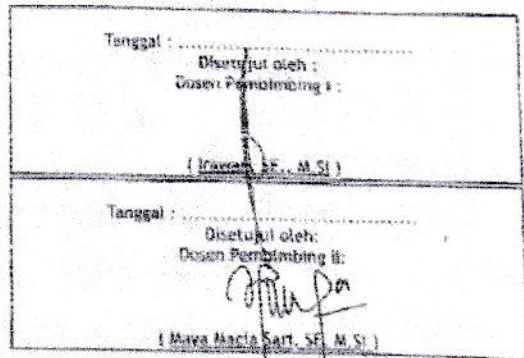 Tanggal : ........................................
Disetujui oleh :
Dosen Pembimbing I :
( Irawan, SE., M.Si )
Tanggal : ........................................
Disetujui oleh:
Dosen Pembimbing II:
( Maya Macia Sari, SE, M.Si )